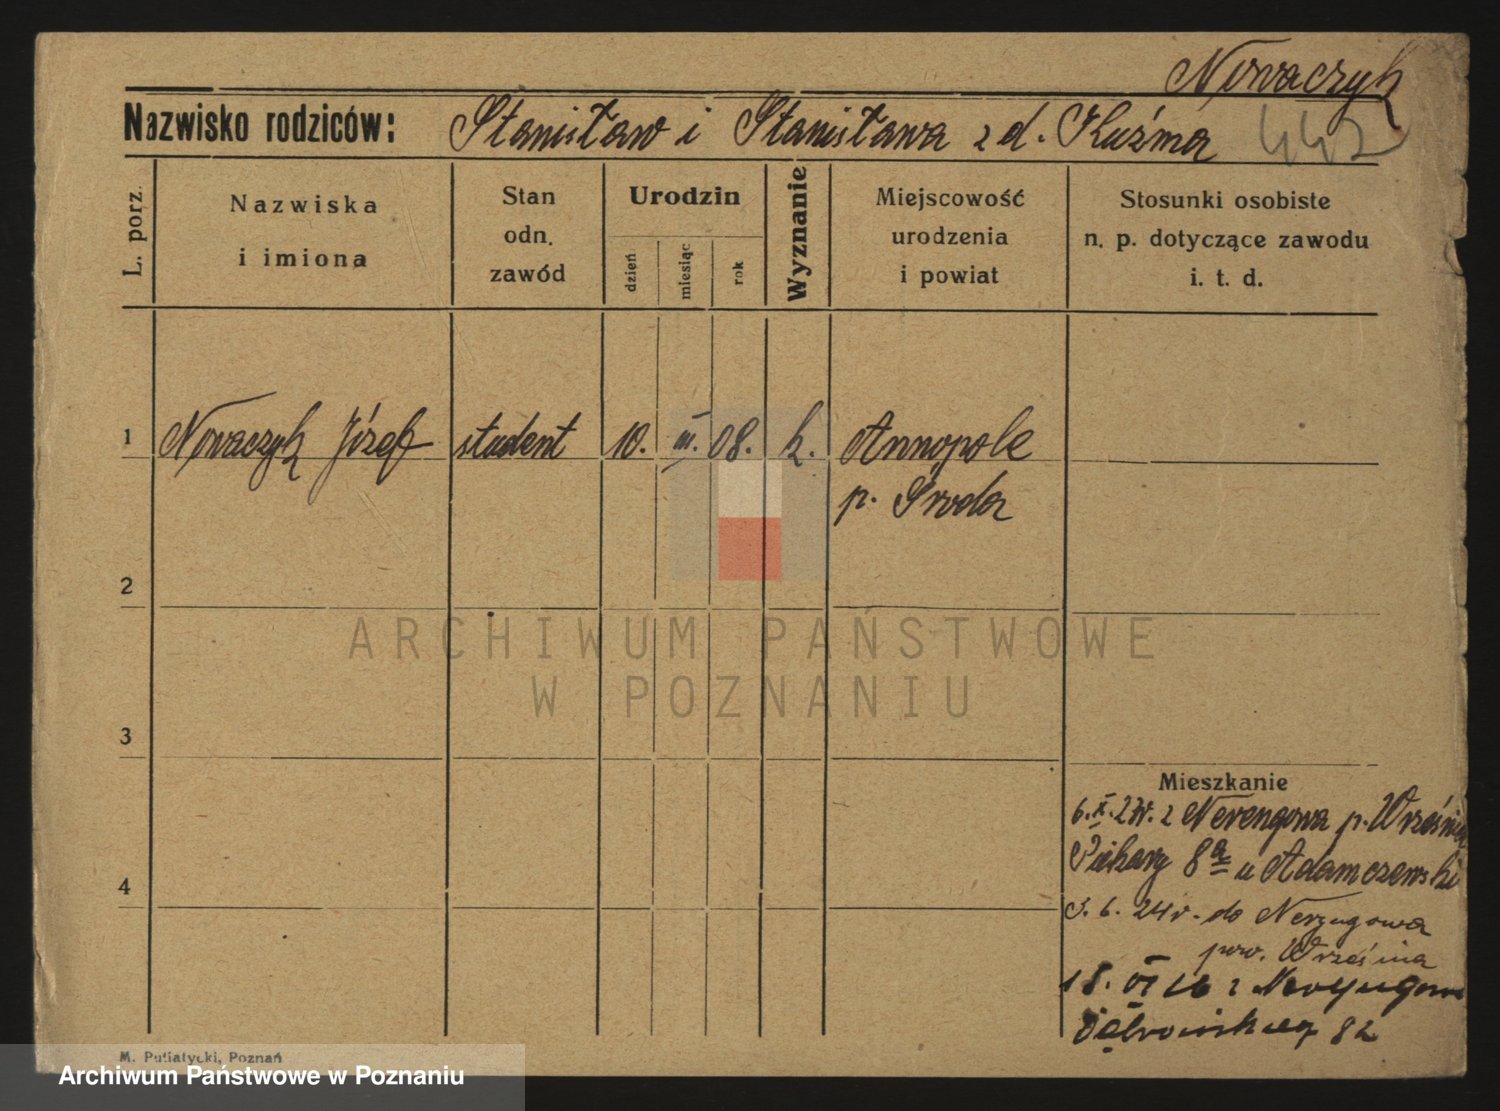 Nowaczyk
Nazwisko rodziców: Stanisław i Stanisława z d. Kuźma 442
L. porz.
Nazwiska
i imiona
Stan
odn.
zawód
Urodzin
dzień
miesiąc
rok
Wyznanie
Miejscowość
urodzenia
i powiat
Stosunki osobiste
n. p. dotyczące zawodu
i. t. d.
1 Nowaczyk Józef student 10. III. 08. k. Annopole
p. Środa
2
ARCHIWUM PAŃSTWOWE
W POZNANIU
3
Mieszkanie
6. X. 23r. z p. Września
Piekary 8a u Adamczewski
3. 6. 24r. do
pow. Września
4
18. VI 26 z
82
M. Putiatycki, Poznań
Archiwum Państwowe w Poznaniu